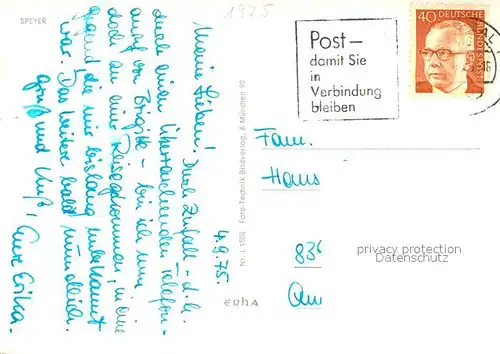 SPEYER
1975
4.9.75.
Meine Lieben! Durch Zufall - d.h.
durch einen überraschenden Telefon-
anruf von Brigitte - bin ich nun
doch an eine Reise gekommen, in eine
Gegend, die mir bislang unbekannt
war. Das Weitere bald mündlich.
Gruß und Kuß, Eure Erika.
Nr. L 1505 Foto-Technik Bildverlag, 8 München 90
ERHA
Post –
damit Sie
in
Verbindung
bleiben
40 DEUTSCHE
BUNDESPOST
Fam.
Hans
836
Am
privacy protection
AK-Ansichtskarten.de